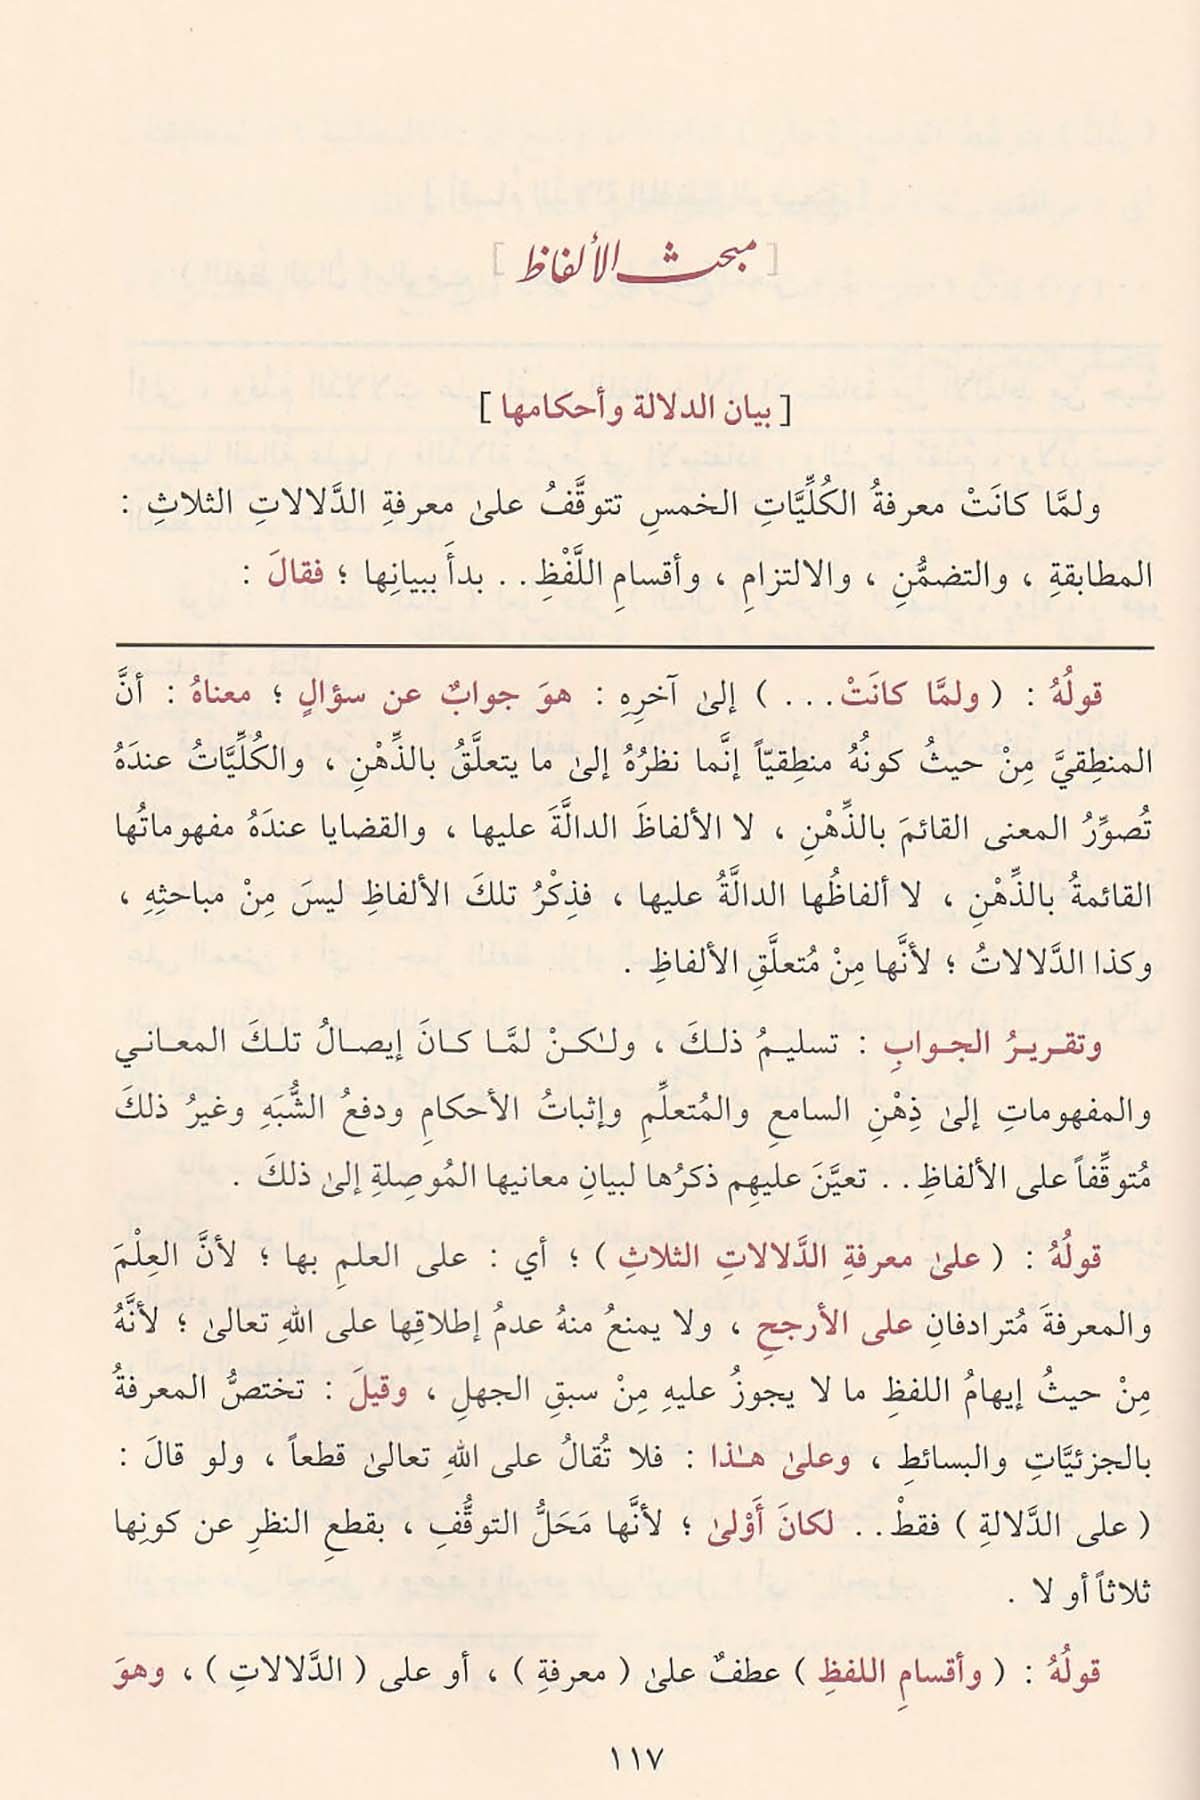 [ مبحث الألفاظ ]
[ بيان الدلالة وأحكامها ]
ولمَّا كانَتْ معرفةُ الكُلِّيَّاتِ الخمسِ تتوقَّفُ علىٰ معرفةِ الدَّلالاتِ الثلاثِ :
المطابقةِ ، والتضمُّنِ ، والالتزامِ ، وأقسامِ اللَّفْظِ . . بدأَ ببيانِها ؛ فقالَ :
قولُهُ : ( ولمَّا كانَتْ . . . ) إلىٰ آخرِهِ : هوَ جوابٌ عن سؤالٍ ؛ معناهُ : أنَّ
المنطِقيَّ مِنْ حيثُ كونُهُ منطِقيّاً إنَّما نظرُهُ إلىٰ ما يتعلَّقُ بالذِّهْنِ ، والكُلِّيَّاتُ عندَهُ
تُصوِّرُ المعنى القائمَ بالذِّهْنِ ، لا الألفاظَ الدالَّةَ عليها ، والقضايا عندَهُ مفهوماتُها
القائمةُ بالذِّهْنِ ، لا ألفاظُها الدالَّةُ عليها ، فذِكْرُ تلكَ الألفاظِ ليسَ مِنْ مباحثِهِ ،
وكذا الدَّلالاتُ ؛ لأنَّها مِنْ مُتعلَّقِ الألفاظِ .
وتقريرُ الجوابِ : تسليمُ ذلكَ ، ولٰكنْ لمَّا كانَ إيصالُ تلكَ المعاني
والمفهوماتِ إلىٰ ذِهْنِ السامعِ والمُتعلِّمِ وإثباتُ الأحكامِ ودفعُ الشُّبَهِ وغيرُ ذلكَ
مُتوقِّفاً على الألفاظِ . . تعيَّنَ عليهِم ذكرُها لبيانِ معانيها المُوصِلةِ إلىٰ ذلكَ .
قولُهُ : ( علىٰ معرفةِ الدَّلالاتِ الثلاثِ ) ؛ أي : على العلمِ بها ؛ لأنَّ العِلْمَ
والمعرفةَ مُترادفانِ على الأرجحِ ، ولا يمنعُ منهُ عدمُ إطلاقِها على اللهِ تعالىٰ ؛ لأنَّهُ
مِنْ حيثُ إيهامُ اللفظِ ما لا يجوزُ عليهِ مِنْ سبقِ الجهلِ ، وقيلَ : تختصُّ المعرفةُ
بالجزئيَّاتِ والبسائطِ ، وعلىٰ هٰذا : فلا تُقالُ على اللهِ تعالىٰ قطعاً ، ولو قالَ :
( على الدَّلالةِ ) فقطْ . . لكانَ أَوْلىٰ ؛ لأنَّها مَحَلُّ التوقُّفِ ، بقطعِ النظرِ عن كونِها
ثلاثاً أو لا .
قولُهُ : ( وأقسامِ اللفظِ ) عطفٌ علىٰ ( معرفةِ ) ، أو على ( الدَّلالاتِ ) ، وهوَ
١١٧